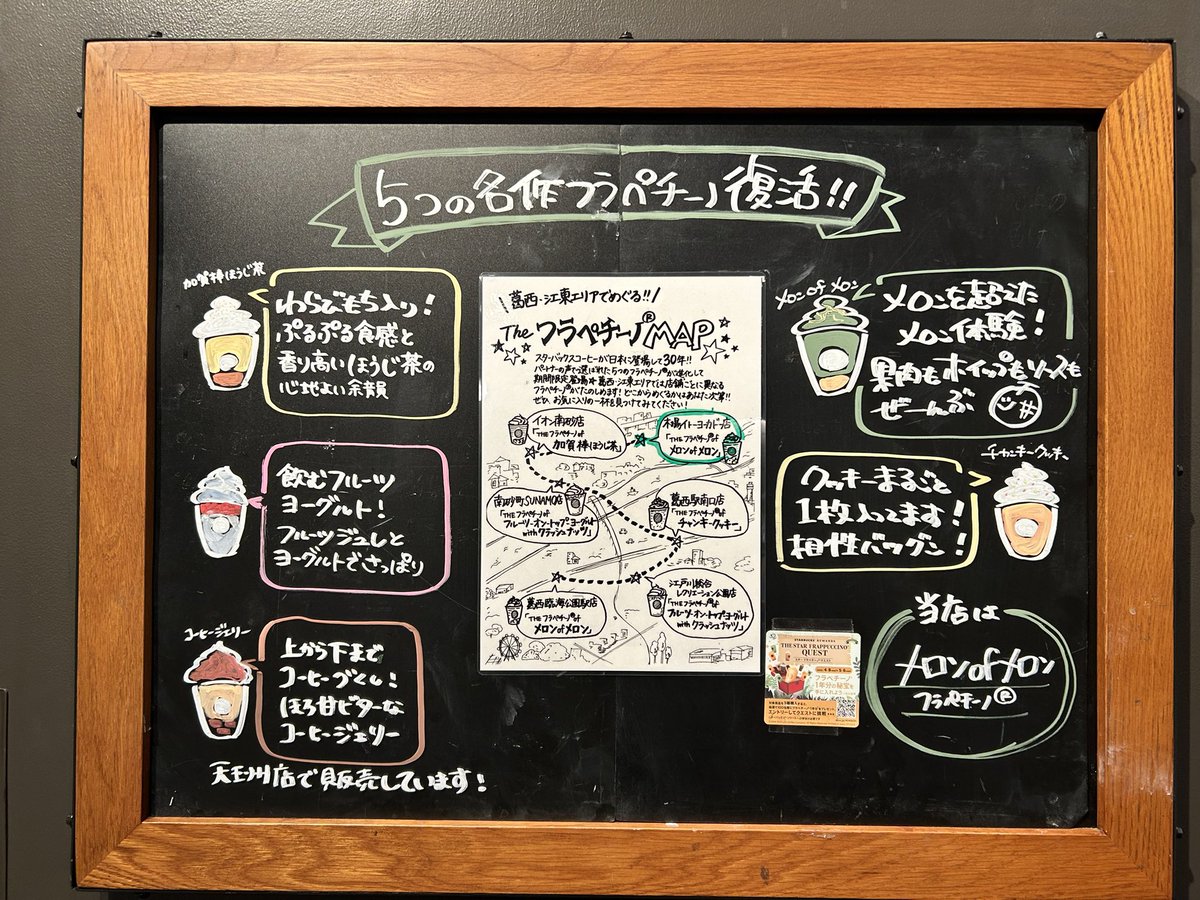 5つの名作フラペチーノ復活!!
加賀棒ほうじ茶
わらびもち入り!
ぷるぷる食感と
香り高いほうじ茶の
心地よい余韻
飲むフルーツ
ヨーグルト!
フルーツジュレと
ヨーグルトでさっぱり
コーヒージェリー
上から下まで
コーヒーづくし!
ほろ甘ビターな
コーヒージェリー
天王州店で販売しています!
葛西・江東エリアでめぐる!!
The フラペチーノ®MAP
スターバックスコーヒーが日本に登場して30年!!
パートナーの声で選ばれた5つのフラペチーノ®が進化して
期間限定登場★葛西・江東エリアでは店舗ごとに異なる
フラペチーノ®がたのしめます!どこからめぐるかはあなた次第!!
ぜひ、お気に入りの一杯を見つけてみてください!
イオン南砂店
「THE フラペチーノ® of
加賀 棒ほうじ茶」
木場イトーヨーカドー店
「THE フラペチーノ® of
メロン of メロン」
南砂町SUNAMO店
「THE フラペチーノ® of
フルーツ-オン-トップヨーグルト
with クラッシュナッツ」
葛西駅南口店
「THE フラペチーノ® of
チャンキークッキー」
葛西臨海公園駅店
「THE フラペチーノ® of
メロン of メロン」
江戸川総合
レクリエーション公園店
「THE フラペチーノ® of
フルーツ-オン-トップヨーグルト
with クラッシュナッツ」
メロン of メロン
メロンを超えた
メロン体験!
果肉もホイップもソースも
ぜーんぶ
チャンキークッキー
クッキーまるごと
1枚入ってます!
相性バツグン!
STARBUCKS REWARDS
THE STAR FRAPPUCCINO®
QUEST
フラペチーノ®
1年分の秘宝を
手に入れよう
エントリーしてクエストに挑戦
当店は
メロン of メロン
フラペチーノ®